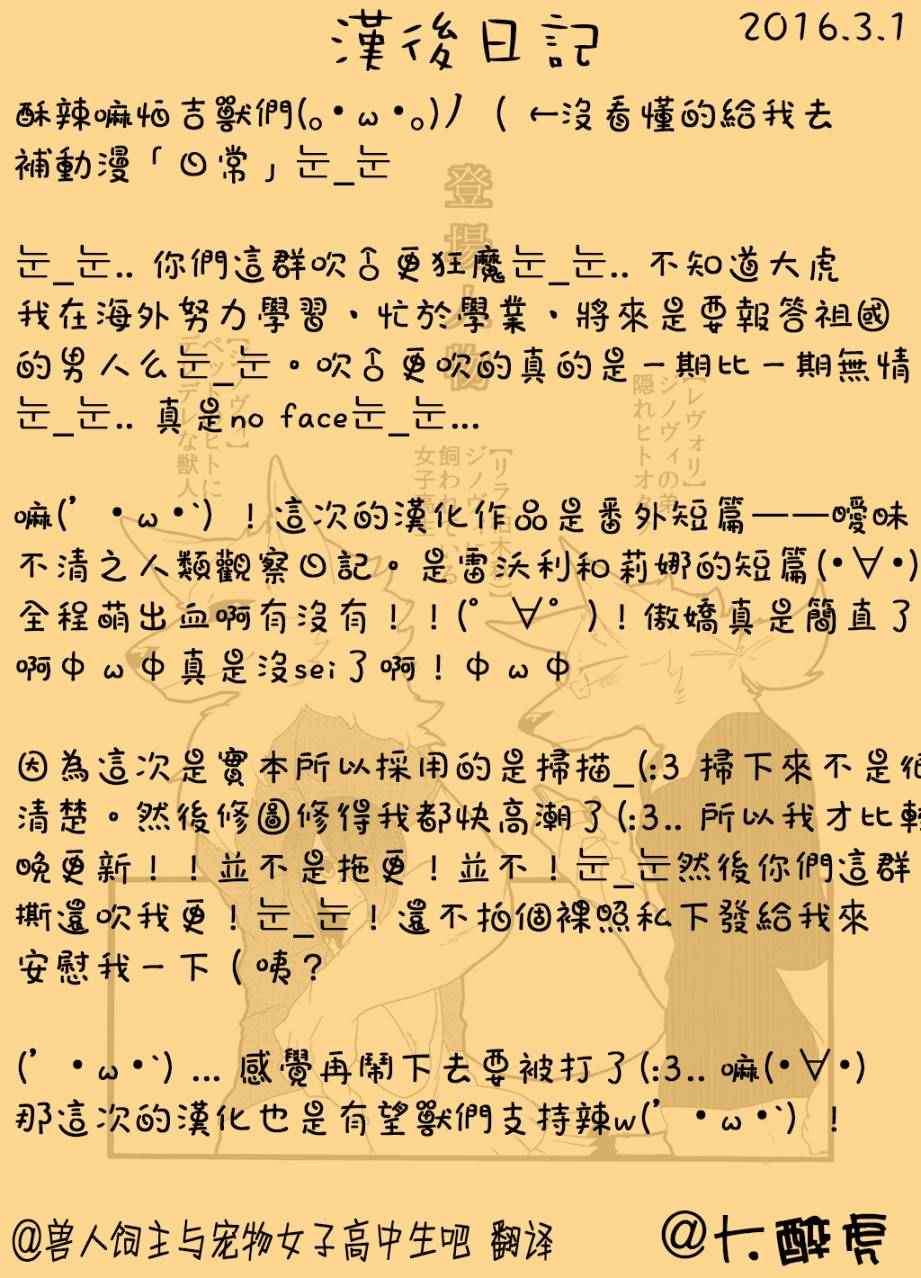 漢後日記
2016.3.1
酥辣嘛怕吉獸們(｡•ω•｡)ﾉ (←沒看懂的給我去
補動漫「日常」눈_눈
눈_눈.. 你們這群吹更狂魔눈_눈.. 不知道大虎
我在海外努力學習、忙於學業、將來是要報答祖國
的男人么눈_눈。吹更吹的真的是一期比一期無情
눈_눈.. 真是no face눈_눈...
嘛(′•ω•`)！這次的漢化作品是番外短篇——曖昧
不清之人類觀察日記。是雷沃利和莉娜的短篇(•∀•)
全程萌出血啊有沒有！！(ﾟ∀ﾟ)！傲嬌真是簡直了
啊ΦωΦ真是沒sei了啊！ΦωΦ
因為這次是實本所以採用的是掃描_(:3 掃下來不是很
清楚。然後修圖修得我都快高潮了(:3.. 所以我才比較
晚更新！！並不是拖更！並不！눈_눈然後你們這群
撕還吹我更！눈_눈！還不拍個裸照私下發給我來
安慰我一下（咦？
(′•ω•`)... 感覺再鬧下去要被打了(:3.. 嘛(•∀•)
那這次的漢化也是有望獸們支持辣w(′•ω•`)！
@兽人饲主与宠物女子高中生吧 翻译
@七醉虎
登場人物
【レヴォリ】
ジノヴィの弟
隠れヒトオタ
【リラ
ジノヴィに
飼われている
女子高生
ペットヒトに
デレな獣人